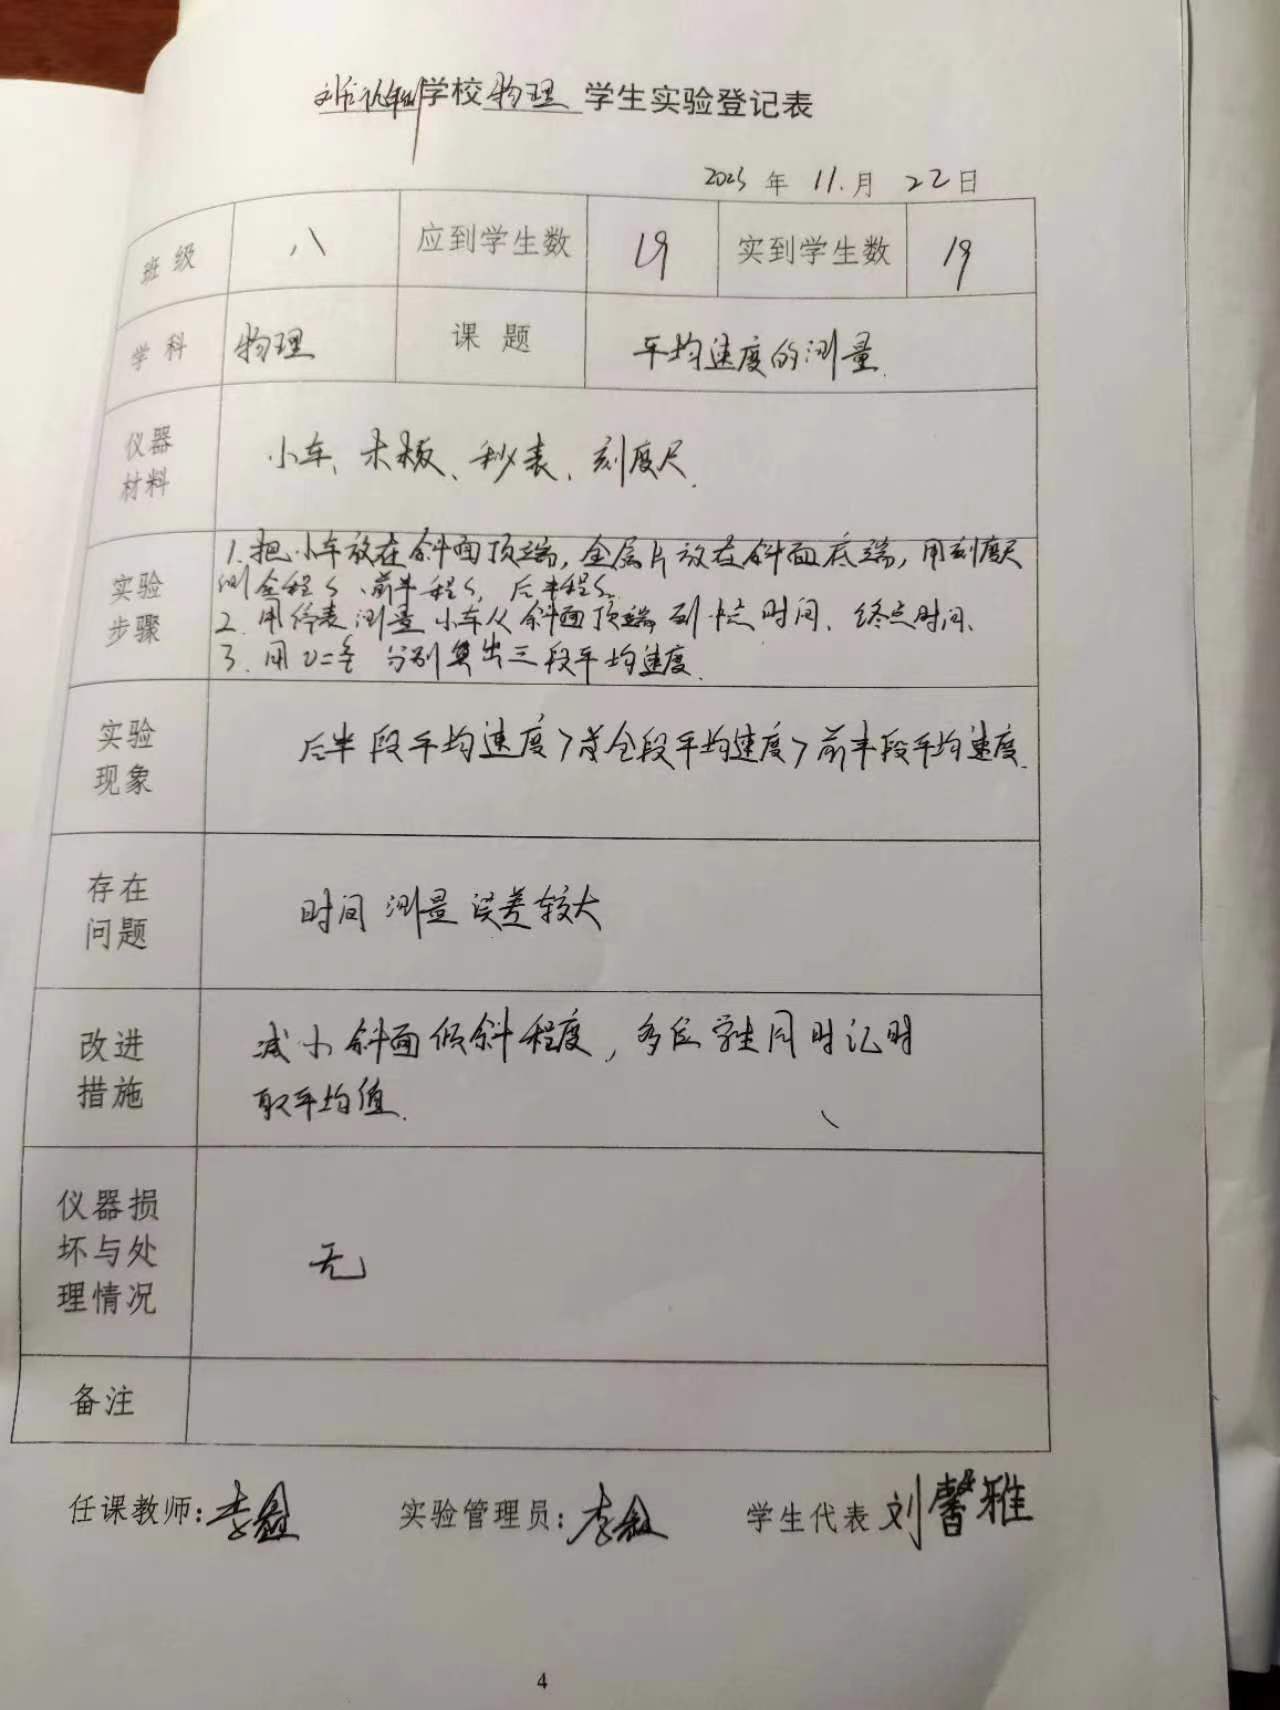 学校 物理 学生实验登记表
2023 年 11 月 22 日
班级 八 应到学生数 19 实到学生数 19
学科 物理 课题 平均速度的测量.
仪器材料 小车、木板、秒表、刻度尺.
实验步骤
1.把小车放在斜面顶端,金属片放在斜面底端,用刻度尺
测全程S、前半程S₁ 后半程S₂
2.用停表测量小车从斜面顶端到中点时间、终点时间、
3.用v=s/t 分别算出三段平均速度.
实验现象 后半段平均速度>全段平均速度>前半段平均速度.
存在问题 时间测量误差较大
改进措施 减小斜面倾斜程度,多位学生同时记时
取平均值.
仪器损坏与处理情况 无
备注
任课教师: 实验管理员: 学生代表 刘馨雅
4